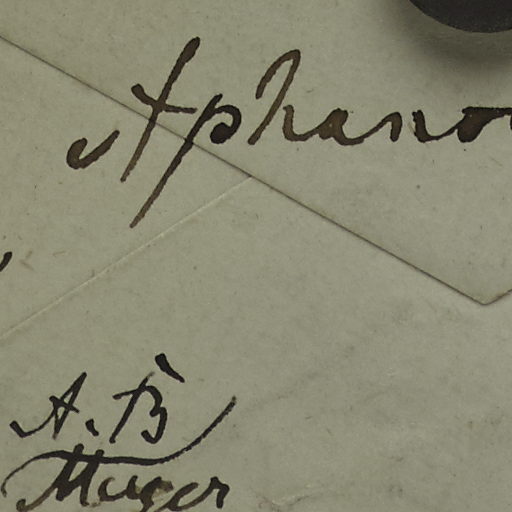 Aphano
A. B
Meyer